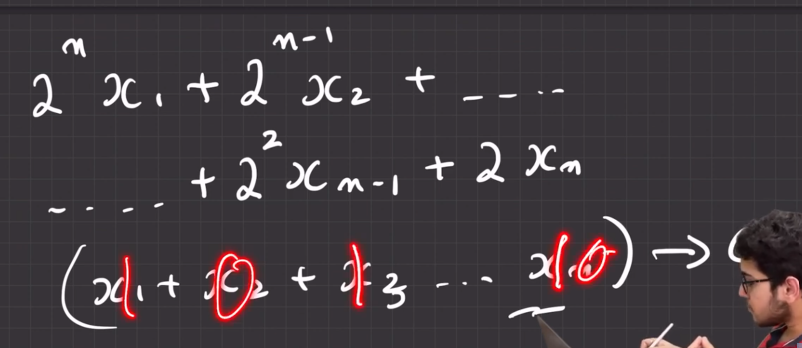 2^n x_1 + 2^{n-1} x_2 + ----
---- + 2^2 x_{n-1} + 2 x_n
(x_1 + x_2 + x_3 ... x ) → (
1 0 1 1 0